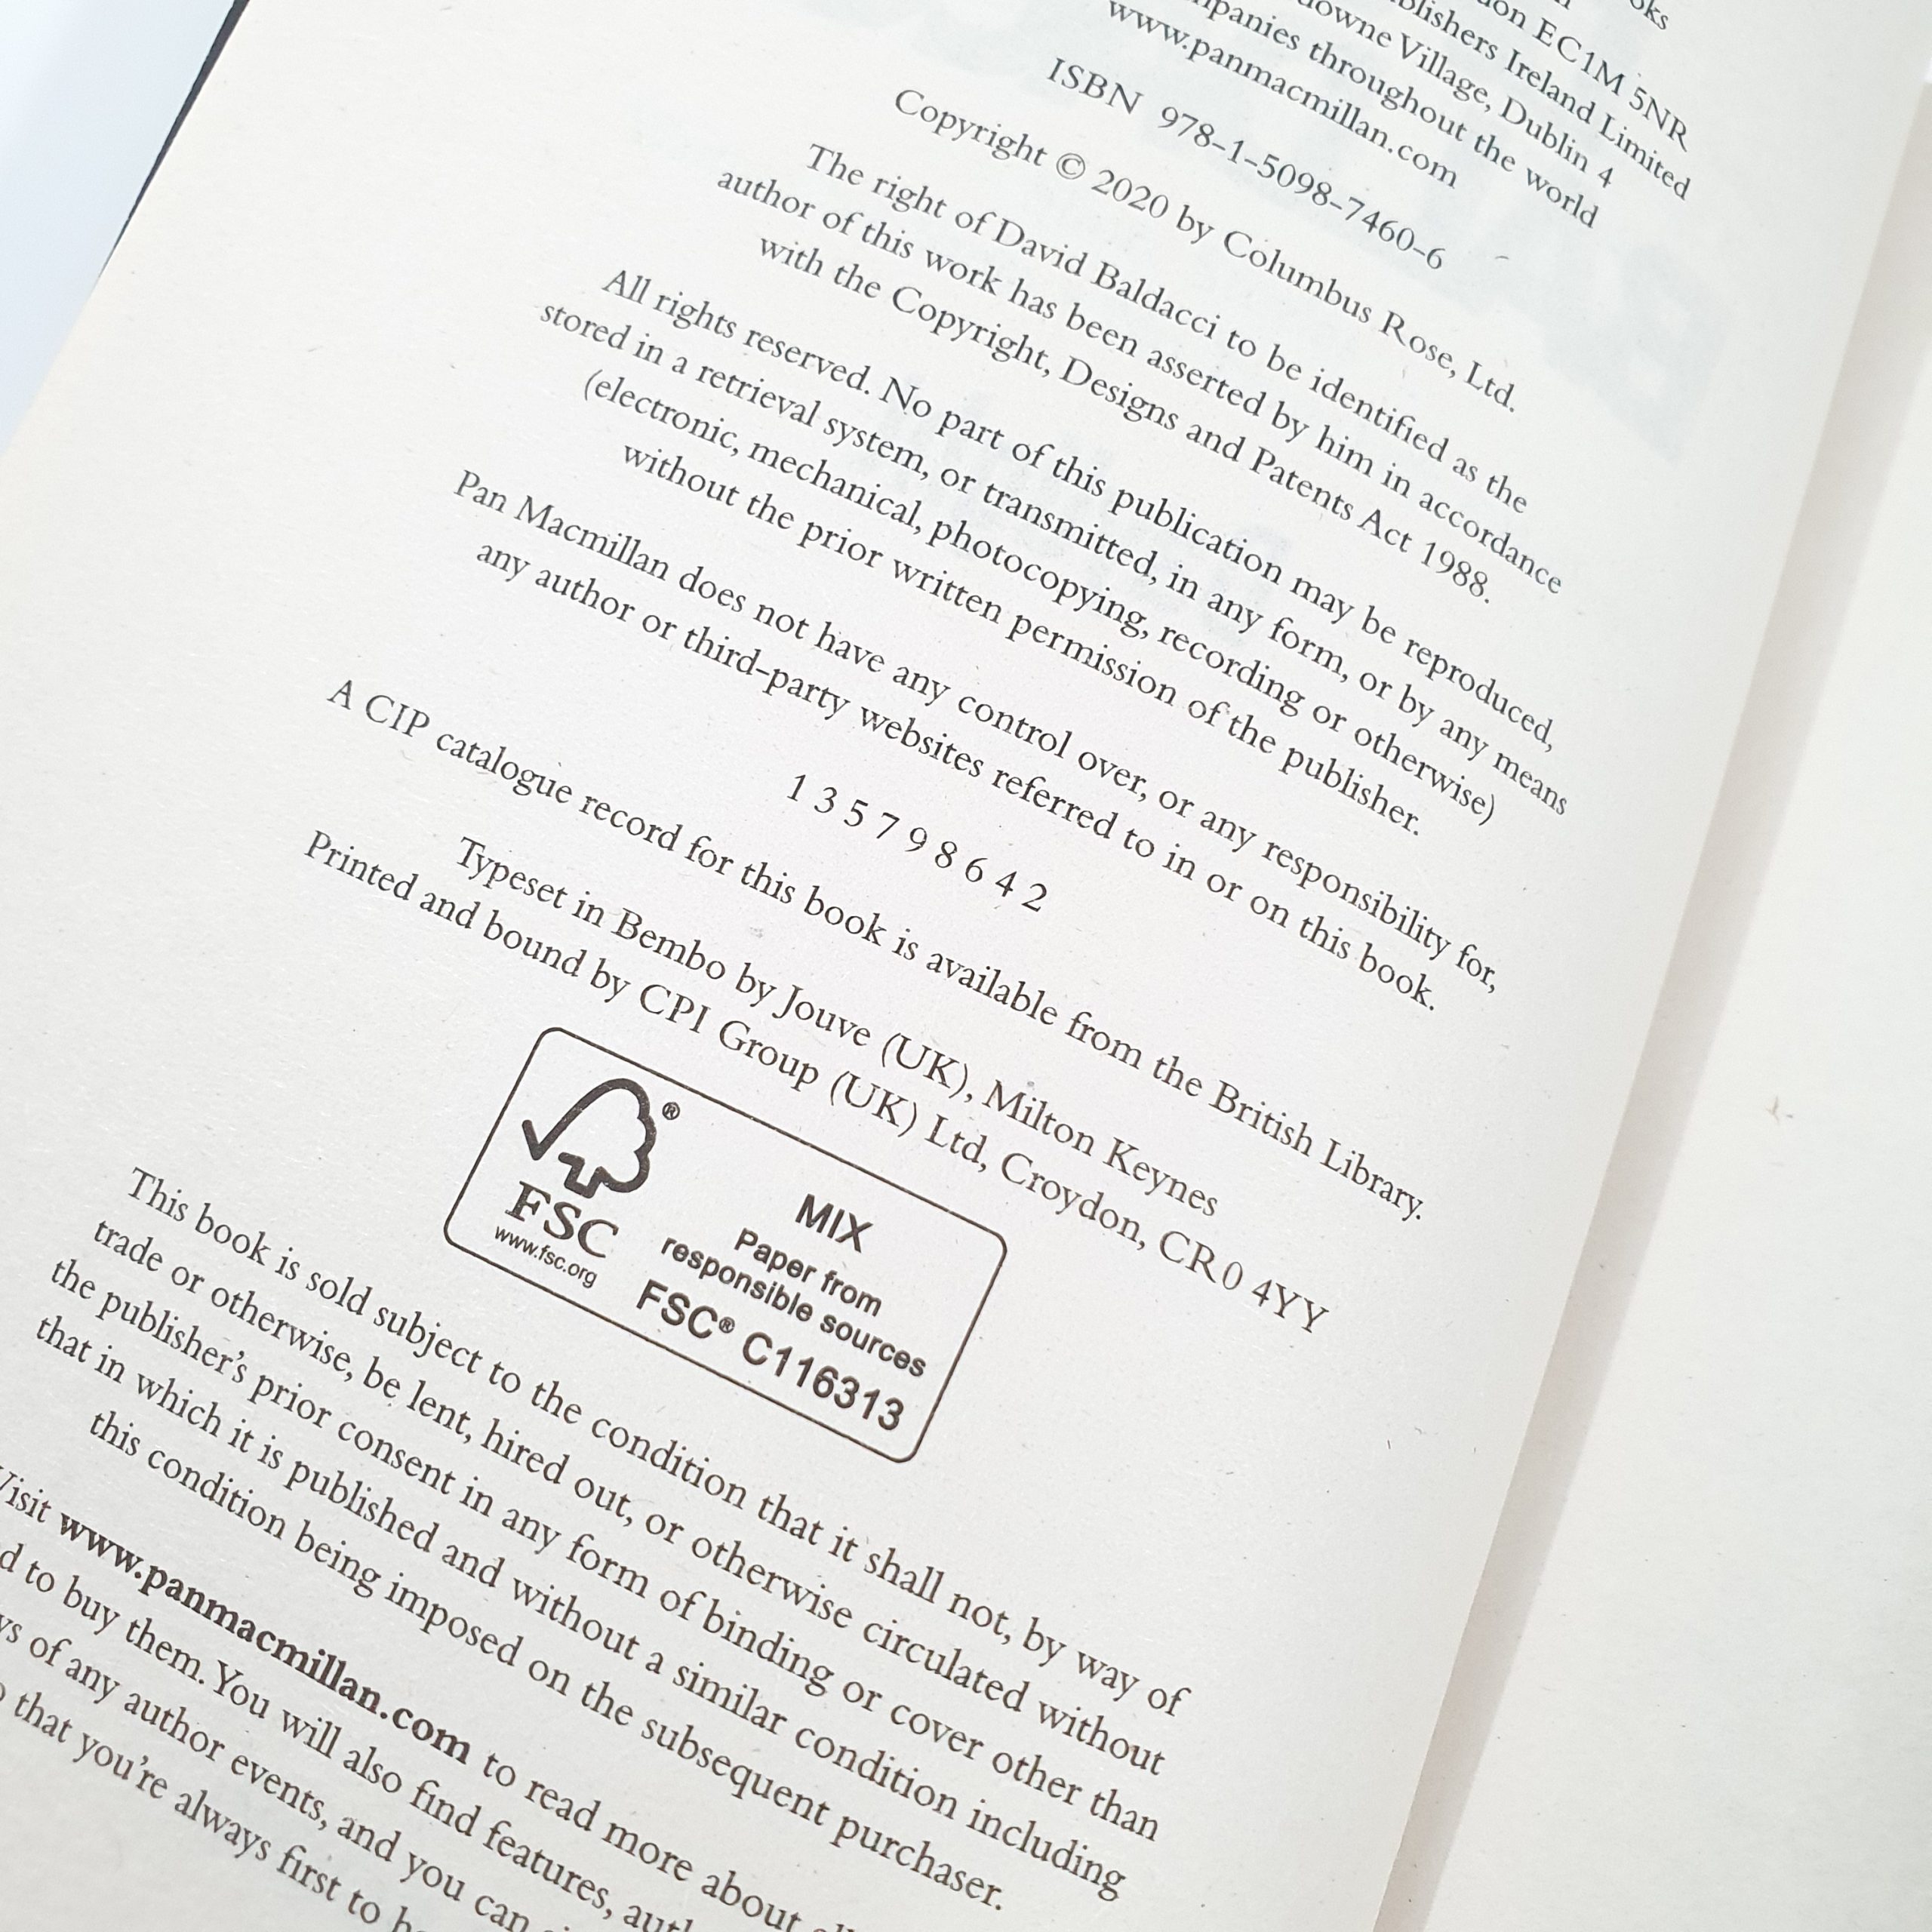 oks
EC1M 5NR
Publishers Ireland Limited
Village, Dublin 4
throughout the world
www.panmacmillan.com
ISBN 978-1-5098-7460-6
Copyright © 2020 by Columbus Rose, Ltd.
The right of David Baldacci to be identified as the
author of this work has been asserted by him in accordance
with the Copyright, Designs and Patents Act 1988.
All rights reserved. No part of this publication may be reproduced,
stored in a retrieval system, or transmitted, in any form, or by any means
(electronic, mechanical, photocopying, recording or otherwise)
without the prior written permission of the publisher.
Pan Macmillan does not have any control over, or any responsibility for,
any author or third-party websites referred to in or on this book.
1 3 5 7 9 8 6 4 2
A CIP catalogue record for this book is available from the British Library.
Typeset in Bembo by Jouve (UK), Milton Keynes
Printed and bound by CPI Group (UK) Ltd, Croydon, CR0 4YY
®
FSC
www.fsc.org
MIX
Paper from
responsible sources
FSC® C116313
This book is sold subject to the condition that it shall not, by way of
trade or otherwise, be lent, hired out, or otherwise circulated without
the publisher's prior consent in any form of binding or cover other than
that in which it is published and without a similar condition including
this condition being imposed on the subsequent purchaser.
Visit www.panmacmillan.com to read more about
d to buy them. You will also find features,
of any author events, and you can
that you're always first to